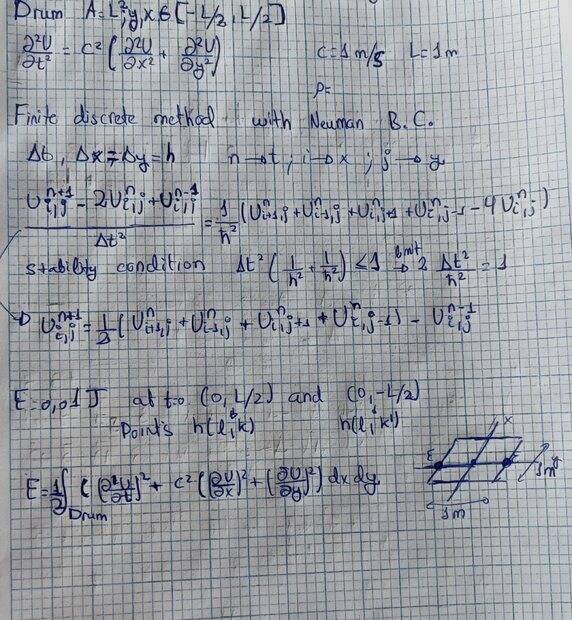 Drum A=L², y,x∈[-L/2, L/2]
∂²U/∂t² = c² (∂²U/∂x² + ∂²U/∂y²) c=1m/s L=1m
ρ=
Finite discrete method with Neuman B.C.
Δt, Δx=Δy=h n→t; i→x; j→y
(U^{n+1}_{i,j} - 2U^n_{i,j} + U^{n-1}_{i,j})/Δt² = 1/h² (U^n_{i+1,j} + U^n_{i-1,j} + U^n_{i,j+1} + U^n_{i,j-1} - 4U^n_{i,j})
stability condition Δt² (1/h² + 1/h²) ≤ 1 → 2 Δt²/h² = 1
→ U^{n+1}_{i,j} = 1/2 (U^n_{i+1,j} + U^n_{i-1,j} + U^n_{i,j+1} + U^n_{i,j-1}) - U^{n-1}_{i,j}
E=0,01J at t=0 (0,L/2) and (0,-L/2)
Points h(l,k) h(l,k')
E=1/2∫_{Drum} ((∂U/∂t)² + c²((∂U/∂x)² + (∂U/∂y)²) dx dy
x
E
y
1m
1m